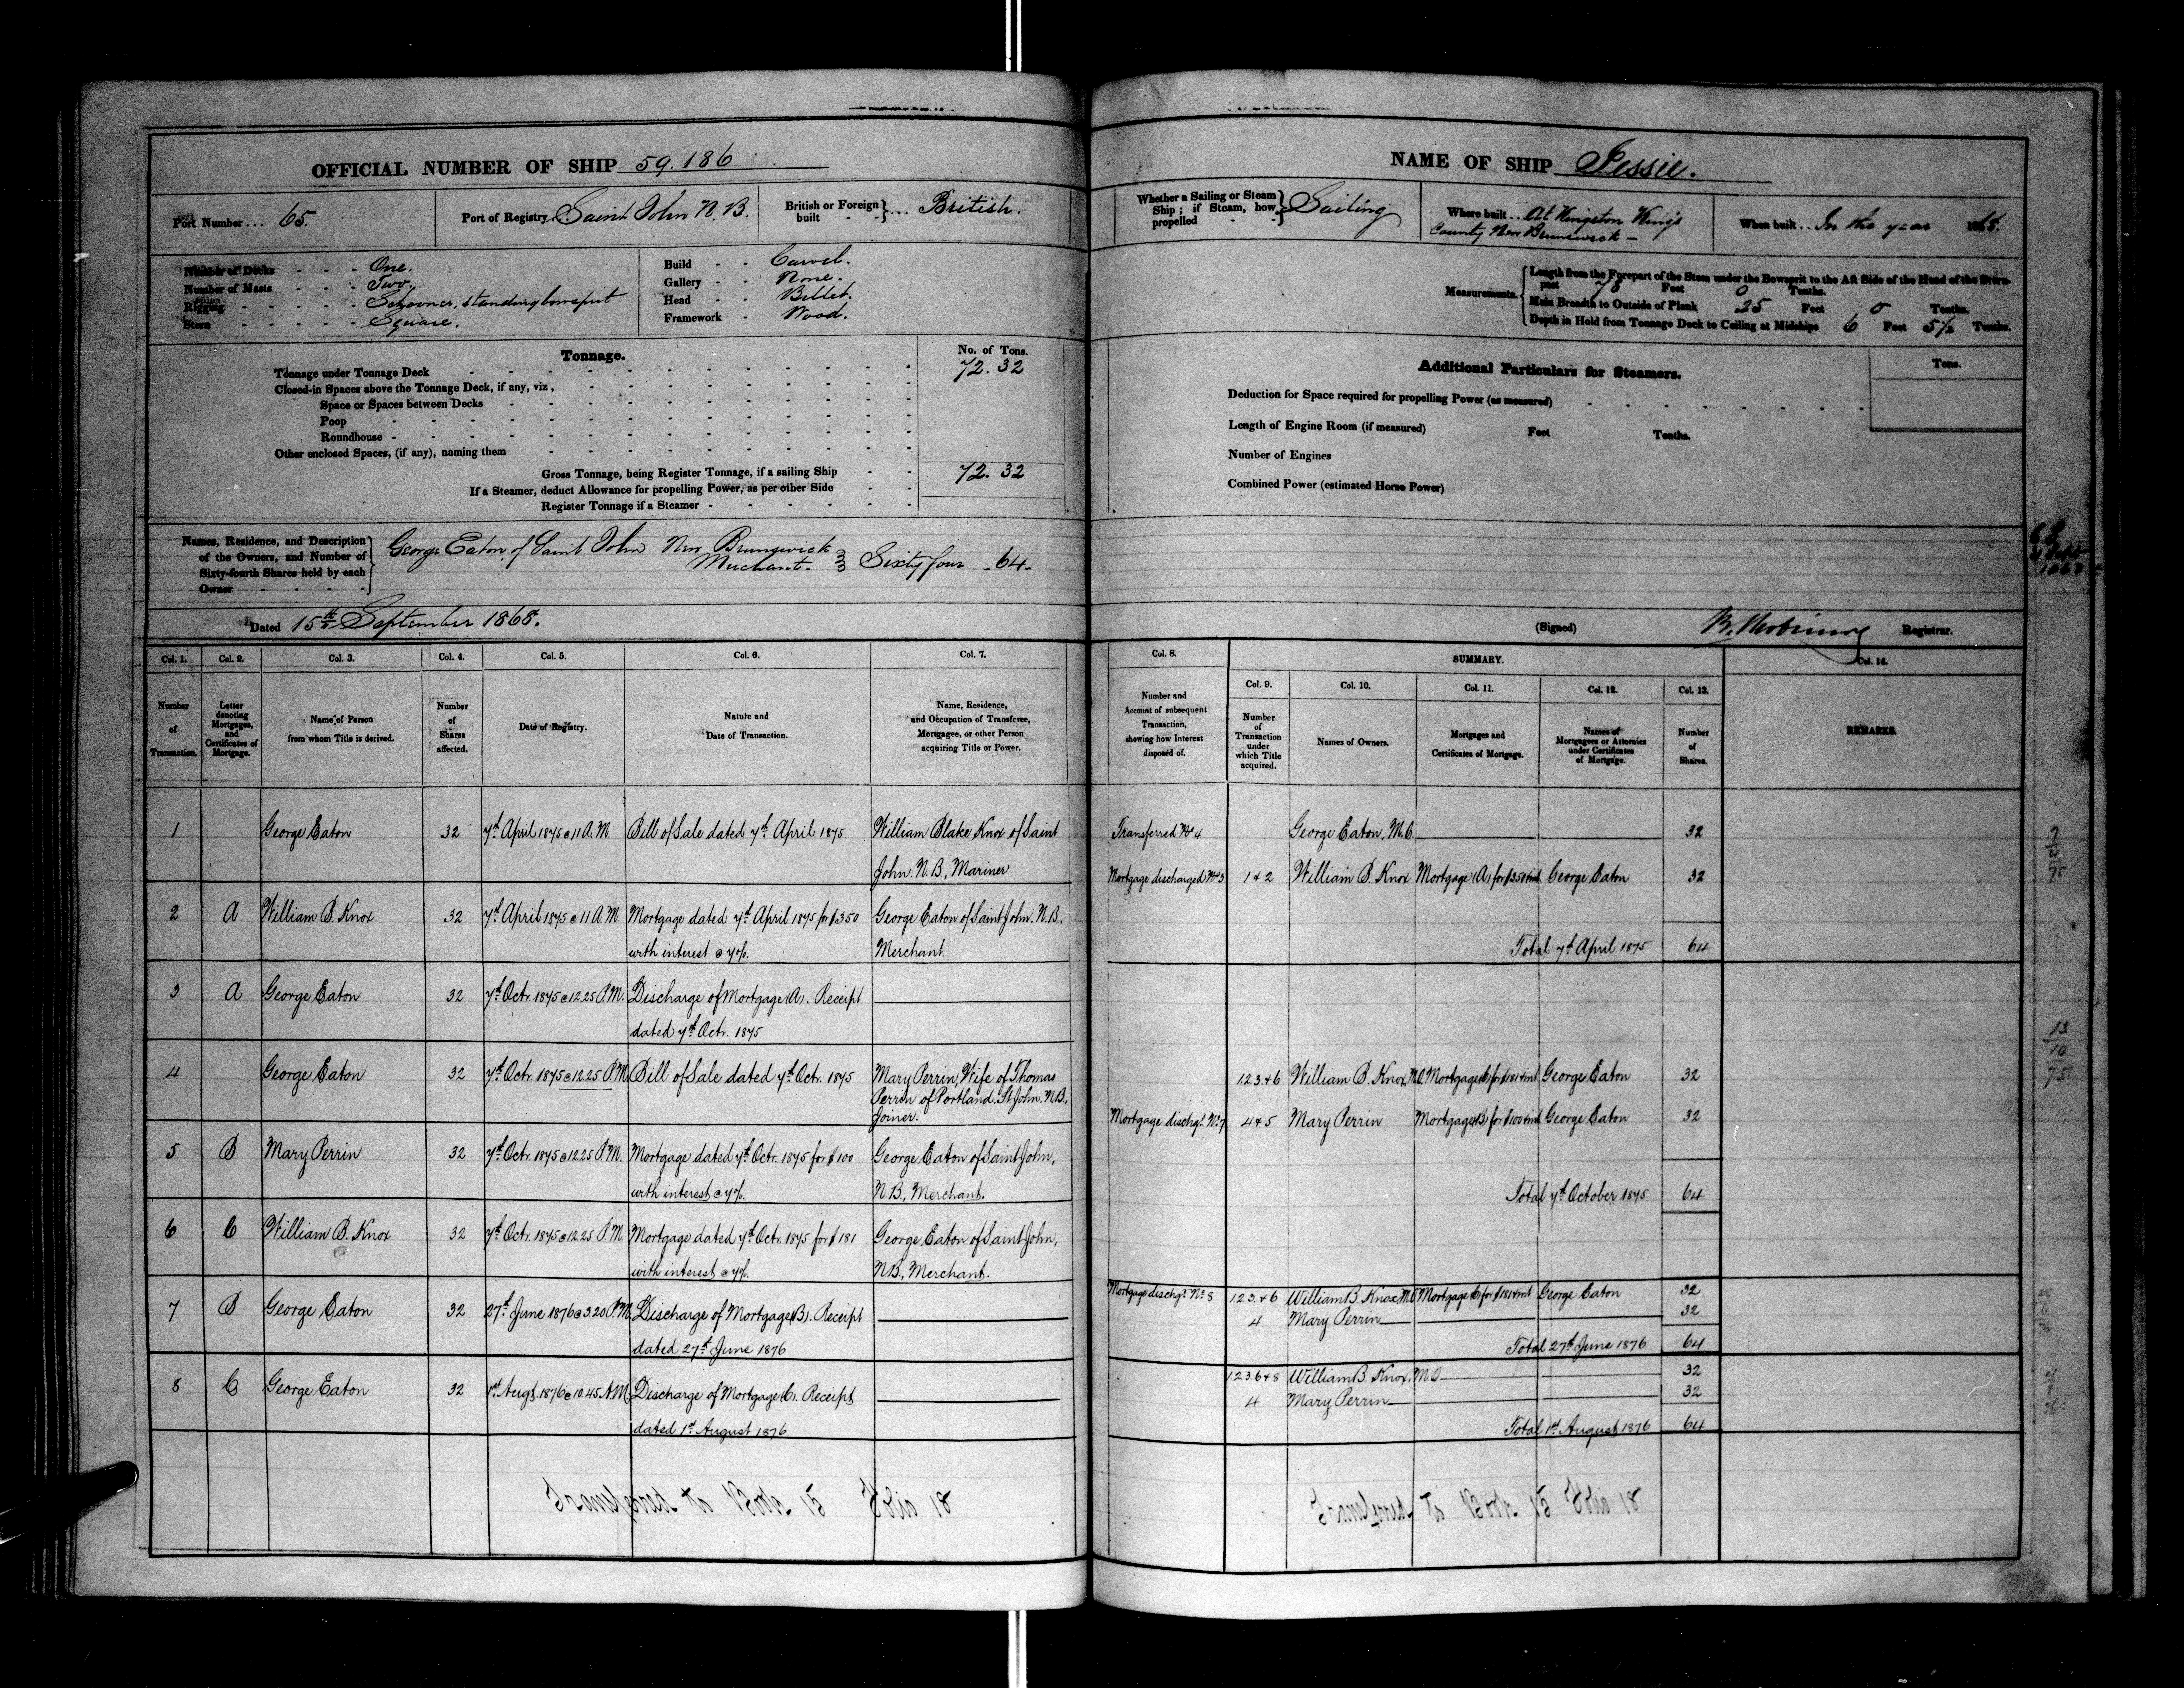 OFFICIAL NUMBER OF SHIP 59.186
Port Number ... 65.
Port of Registry Saint John N. B.
British or Foreign built - - } ... British.
Number of Decks - - - One.
Number of Masts - - - Two.
Rigging - - - - - Schooner, standing bowsprit
Stern - - - - - Square.
Build - - Carvel.
Gallery - - None.
Head - - Billet.
Framework - Wood.
Tonnage.
No. of Tons.
Tonnage under Tonnage Deck 72. 32
Closed-in Spaces above the Tonnage Deck, if any, viz,
Space or Spaces between Decks
Poop
Roundhouse
Other enclosed Spaces, (if any), naming them
Gross Tonnage, being Register Tonnage, if a sailing Ship 72. 32
If a Steamer, deduct Allowance for propelling Power, as per other Side
Register Tonnage if a Steamer
Names, Residence, and Description
of the Owners, and Number of
Sixty-fourth Shares held by each
Owner
George Eaton of Saint John New Brunswick
Merchant. Sixty four - 64 -
Dated 15th September 1868.
Col. 1. Col. 2. Col. 3. Col. 4. Col. 5. Col. 6. Col. 7.
Number of Transaction.
Letter denoting Mortgages, and Certificates of Mortgage.
Name of Person from whom Title is derived.
Number of Shares affected.
Date of Registry.
Nature and Date of Transaction.
Name, Residence, and Occupation of Transferee, Mortgagee, or other Person acquiring Title or Power.
1 George Eaton 32 7th April 1875 @ 11 A.M. Bill of Sale dated 7th April 1875 William Blake Knox of Saint
John. N.B., Mariner
2 A William B. Knox 32 7th April 1875 @ 11 A.M. Mortgage dated 7th April 1875 for $350 George Eaton of Saint John. N.B.,
with interest @ 7%. Merchant
3 A George Eaton 32 7th Octr. 1875 @ 12.25 P.M. Discharge of Mortgage (A). Receipt
dated 7th Octr. 1875
4 George Eaton 32 7th Octr. 1875 @ 12.25 P.M. Bill of Sale dated 7th Octr. 1875 Mary Perrin, Wife of Thomas
Perrin of Portland. St John. N.B.,
Joiner.
5 B Mary Perrin 32 7th Octr. 1875 @ 12.25 P.M. Mortgage dated 7th Octr. 1875 for $100 George Eaton of Saint John,
with interest @ 7%. N.B., Merchant.
6 C William B. Knox 32 7th Octr. 1875 @ 12.25 P.M. Mortgage dated 7th Octr. 1875 for $181 George Eaton of Saint John,
with interest @ 7%. N.B., Merchant.
7 B George Eaton 32 27th June 1876 @ 3.20 P.M. Discharge of Mortgage (B). Receipt
dated 27th June 1876
8 C George Eaton 32 1st Augt. 1876 @ 10.45 A.M. Discharge of Mortgage (C). Receipt
dated 1st August 1876
Transferred to Book 15 Folio 18
NAME OF SHIP Jessie.
Whether a Sailing or Steam Ship; if Steam, how propelled - - } Sailing
Where built .. At Kingston King's
County New Brunswick -
When built .. In the year 1868.
Measurements.
Length from the Forepart of the Stem under the Bowsprit to the Aft Side of the Head of the Stern-
post 78 Feet 0 Tenths.
Main Breadth to Outside of Plank 25 Feet 0 Tenths.
Depth in Hold from Tonnage Deck to Ceiling at Midships 6 Feet 5½ Tenths.
Additional Particulars for Steamers.
Tons.
Deduction for Space required for propelling Power (as measured)
Length of Engine Room (if measured) Feet Tenths.
Number of Engines
Combined Power (estimated Horse Power)
(Signed) Registrar.
Col. 8. SUMMARY. Col. 14.
Col. 9. Col. 10. Col. 11. Col. 12. Col. 13.
Number and Account of subsequent Transaction, showing how Interest disposed of.
Number of Transaction under which Title acquired.
Names of Owners.
Mortgages and Certificates of Mortgage.
Names of Mortgagees or Attornies under Certificates of Mortgage.
Number of Shares.
REMARKS.
Transferred No 4 George Eaton, M.O. 32
Mortgage discharged No 3 1 & 2 William B. Knox Mortgage (A) for $350 & int George Eaton 32
Total 7th April 1875 64
1.2.3. & 6 William B. Knox, M.O. Mortgage (C) for $181 & int George Eaton 32
Mortgage dischgd. No. 7 4 & 5 Mary Perrin Mortgage (B) for $100 & int George Eaton 32
Total 7th October 1875 64
Mortgage dischgd. No. 8 1.2.3. & 6 William B. Knox M.O. Mortgage C for $181 & int George Eaton 32
4 Mary Perrin 32
Total 27th June 1876 64
1.2.3.6 & 8 William B. Knox, M.O. 32
4 Mary Perrin 32
Total 1st August 1876 64
Transferred to Book 15 Folio 18